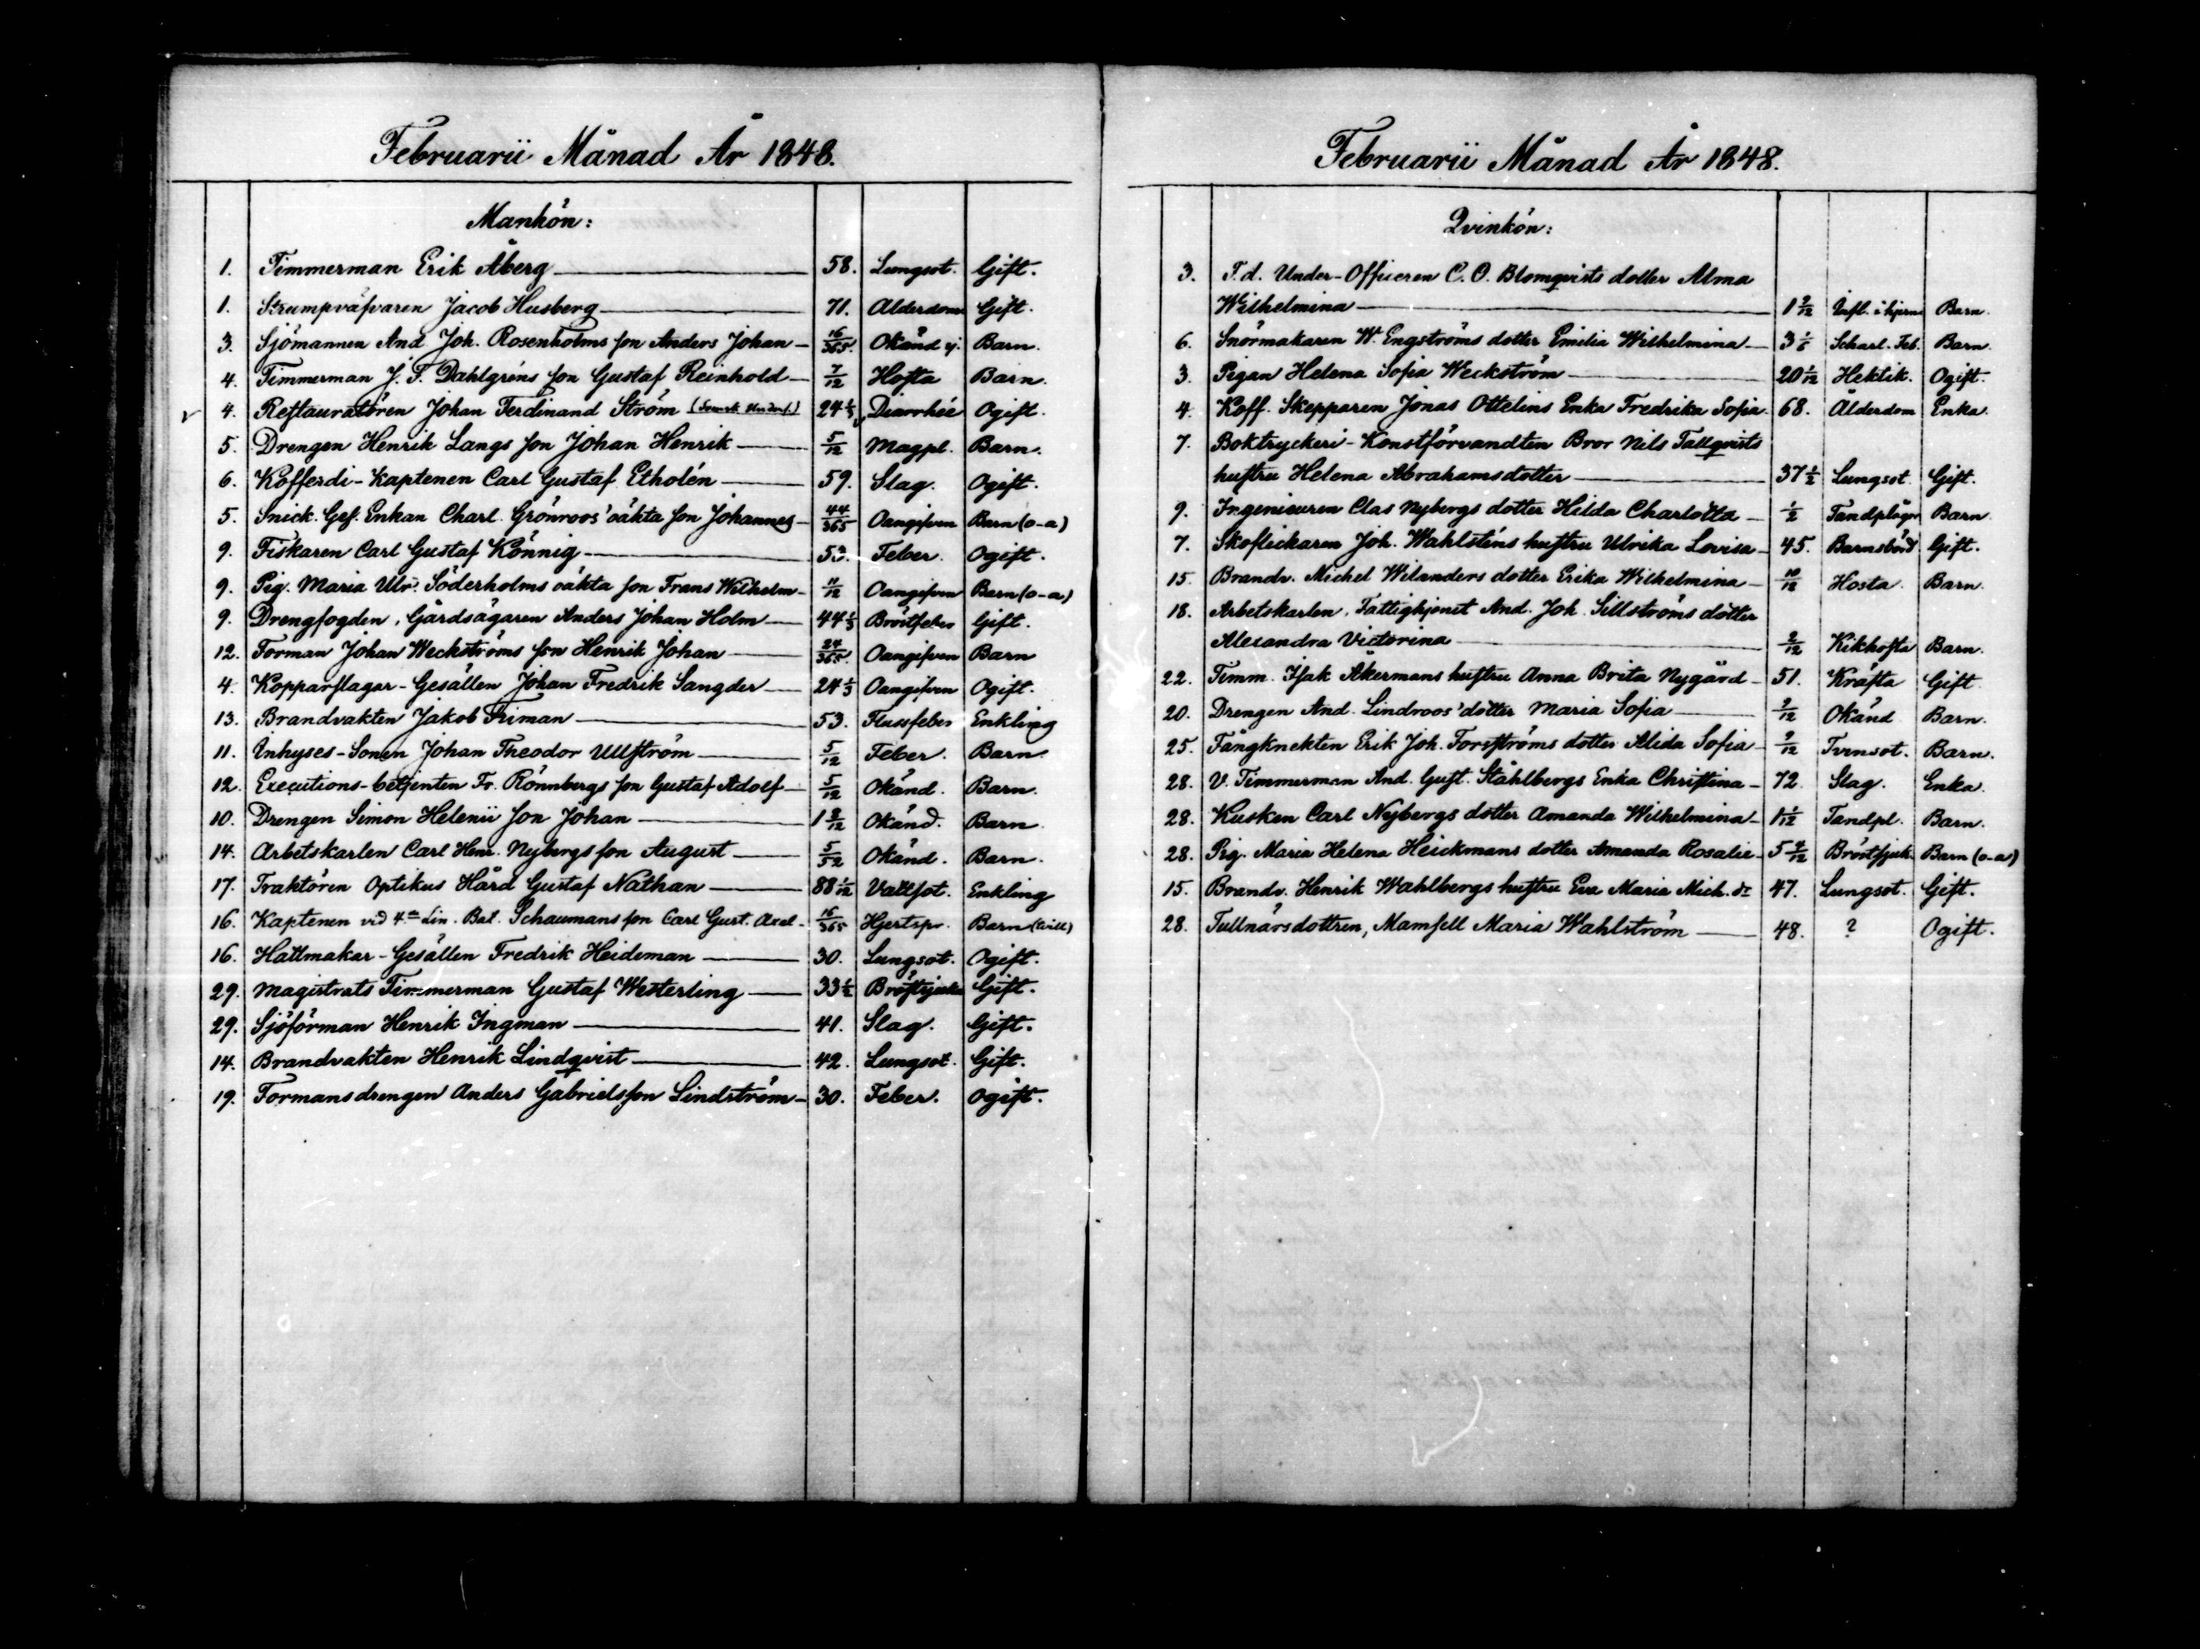 Februarii Månad År 1848.
Mankön:
1. Timmerman Erik Åberg 58. Lungsot. Gift.
1. Strumpväfvaren Jacob Husberg 71. Ålderdom Gift.
3. Sjömannen And Joh. Rosenholms son Anders Johan 16/365. Okänd sj. Barn.
4. Timmerman J. F. Dahlgréns son Gustaf Reinhold 7/12 Hosta Barn.
4. Restauratören Johan Ferdinand Ström (Svensk Unders.) 24 1/3 Diarrhée Ogift.
5. Drengen Henrik Langs son Johan Henrik 5/12 Magpl. Barn.
6. Kofferdi-Kaptenen Carl Gustaf Etholén 59. Slag. Ogift.
5. Snick. Ges. Enkan Charl. Grönroos' oäkta son Johannes 44/365 Oangifven Barn (o-a)
9. Fiskaren Carl Gustaf Könnig 53. Feber. Ogift.
9. Pig. Maria Ulr. Söderholms oäkta son Frans Wilhelm 11/12 Oangifven Barn (o-a)
9. Drengfogden, Gårdsägaren Anders Johan Holm 44 1/3 Bröstfeber Gift.
12. Forman Johan Weckströms son Henrik Johan 24/365. Oangifven Barn
4. Kopparslagar-Gesällen Johan Fredrik Sangder 24 1/3 Oangifven Ogift.
13. Brandvakten Jakob Friman 53. Flussfeber Enkling
11. Inhyses-Sonen Johan Theodor Ullström 5/12 Feber. Barn
12. Executions-betjenten Fr. Rönnbergs son Gustaf Adolf 5/12 Okänd. Barn.
10. Drengen Simon Helenii son Johan 1 2/12 Okänd. Barn
14. Arbetskarlen Carl Henr. Nybergs son August 5/52 Okänd. Barn.
17. Traktören Optikus Hård Gustaf Nathan 88 1/12 Vattsot. Enkling
16. Kaptenen vid 4de Lin. Bat. Schaumans son Carl Gust. Axel 16/365 Hjertspr. Barn (Civill)
16. Hattmakar-Gesällen Fredrik Heideman 30. Lungsot. Ogift.
29. Magistrats Timmerman Gustaf Westerling 33 1/2 Bröstsjuka Gift.
29. Sjöförman Henrik Ingman 41. Slag. Gift.
14. Brandvakten Henrik Lindqvist 42. Lungsot. Gift.
19. Formansdrengen Anders Gabrielsson Lindström 30. Feber. Ogift.
Februarii Månad År 1848.
Qvinkön:
3. F.d. Under-Officeren C. O. Blomqvists dotter Alma
Wilhelmina 1 9/12 Infl. i hjern Barn.
6. Snörmakaren W. Engströms dotter Emilia Wilhelmina 3 1/6 Scharl. Feb. Barn.
3. Pigan Helena Sofia Weckström 20 1/12 Hektik. Ogift.
4. Koff. Skepparen Jonas Ottelins Enka Fredrika Sofia 68. Ålderdom Enka.
7. Boktryckeri-Konstförvandten Bror Nils Tallqvists
hustru Helena Abrahamsdotter 37 1/2 Lungsot Gift.
9. Ingenieuren Clas Nybergs dotter Hilda Charlotta 1/2 Tandplågor Barn
7. Skoflickaren Joh. Wahlsténs hustru Ulrika Lovisa 45. Barnsbörd Gift.
15. Brandv. Michel Wilanders dotter Erika Wilhelmina 10/12 Hosta Barn.
18. Arbetskarlen, Fattighjonet And. Joh. Sillströms dotter
Alexandra Victorina 2/12 Kikhosta Barn.
22. Timm. Isak Åkermans hustru Anna Brita Nygård 51. Kräfta Gift
20. Drengen And. Lindroos' dotter Maria Sofia 9/12 Okänd Barn.
25. Fångknekten Erik Joh. Forsströms dotter Alida Sofia 9/12 Tvinsot. Barn.
28. V. Timmerman And. Gust. Ståhlbergs Enka Christina 72. Slag. Enka.
28. Kusken Carl Nybergs dotter Amanda Wilhelmina 1 1/12 Tandpl. Barn.
28. Pig. Maria Helena Heickmans dotter Amanda Rosalie 5 2/12 Bröstsjuk. Barn (o-a)
15. Brandv. Henrik Wahlbergs hustru Eva Maria Mich. dr 47. Lungsot. Gift.
28. Tullnärsdottren, Mamsell Maria Wahlström 48. ? Ogift.